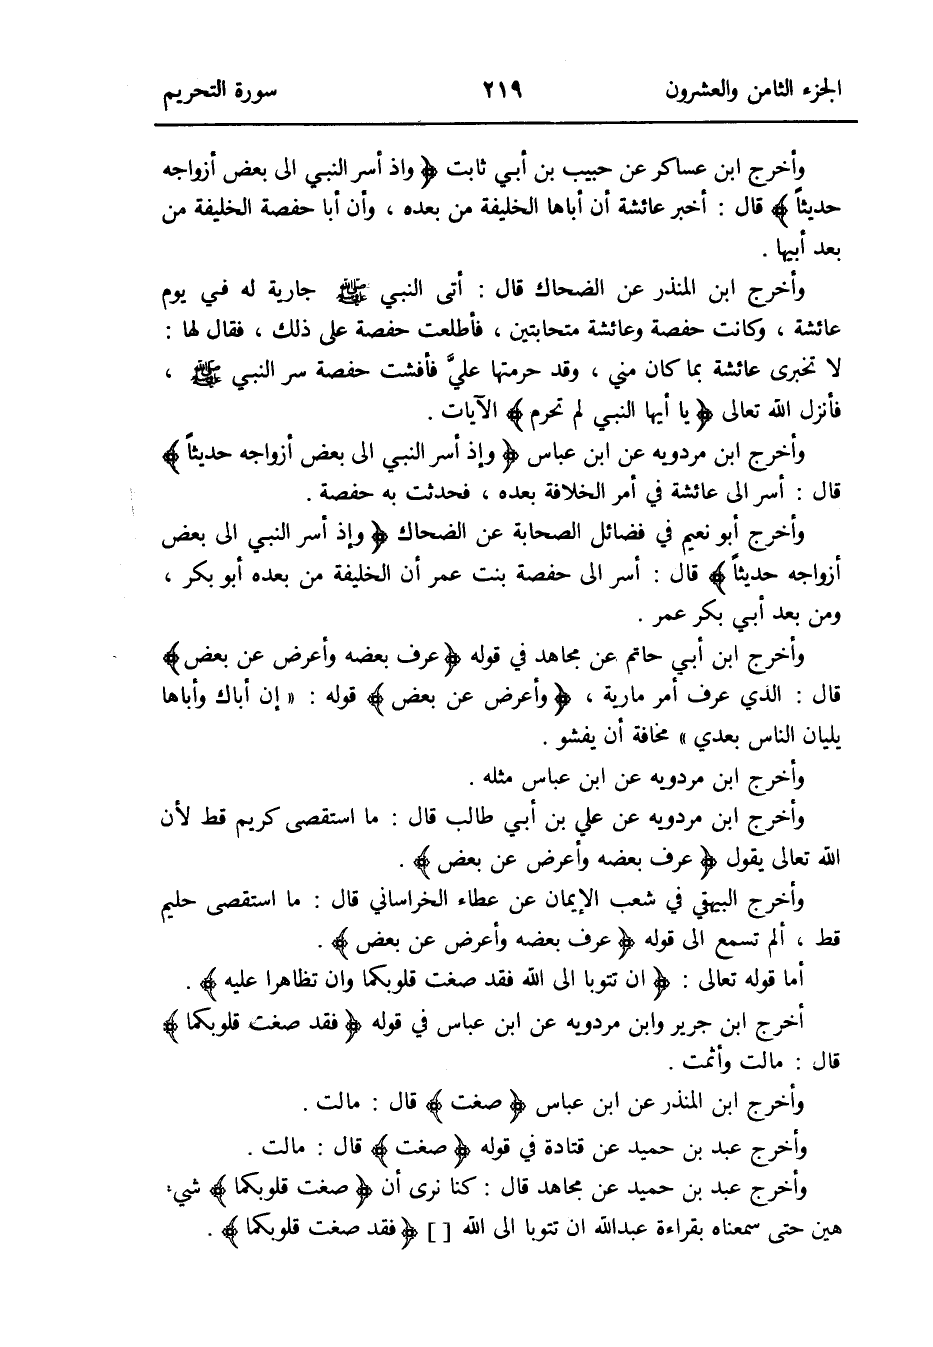 الجزء الثامن والعشرون ٢١٩ سورة التحريم
وأخرج ابن عساكر عن حبيب بن أبي ثابت ﴿ واذ أسر النبي الى بعض أزواجه
حديثاً ﴾ قال : أخبر عائشة أن أباها الخليفة من بعده ، وأن أبا حفصة الخليفة من
بعد أبيها .
وأخرج ابن المنذر عن الضحاك قال : أتى النبي ﷺ جارية له في يوم
عائشة ، وكانت حفصة وعائشة متحابتين ، فأطلعت حفصة على ذلك ، فقال لها :
لا تخبرى عائشة بما كان مني ، وقد حرمتها عليَّ فأفشت حفصة سر النبي ﷺ ،
فأنزل الله تعالى ﴿ يا أيها النبي لم تحرم ﴾ الآيات .
وأخرج ابن مردويه عن ابن عباس ﴿ وإذ أسر النبي الى بعض أزواجه حديثاً ﴾
قال : أسر الى عائشة في أمر الخلافة بعده ، فحدثت به حفصة .
وأخرج أبو نعيم في فضائل الصحابة عن الضحاك ﴿ وإذ أسر النبي الى بعض
أزواجه حديثاً ﴾ قال : أسر الى حفصة بنت عمر أن الخليفة من بعده أبو بكر ،
ومن بعد أبي بكر عمر .
وأخرج ابن أبي حاتم عن مجاهد في قوله ﴿ عرف بعضه وأعرض عن بعض ﴾
قال : الذي عرف أمر مارية ، ﴿ وأعرض عن بعض ﴾ قوله : « إن أباك وأباها
يليان الناس بعدي » مخافة أن يفشو .
وأخرج ابن مردويه عن ابن عباس مثله .
وأخرج ابن مردويه عن علي بن أبي طالب قال : ما استقصى كريم قط لأن
الله تعالى يقول ﴿ عرف بعضه وأعرض عن بعض ﴾ .
وأخرج البيهقي في شعب الإيمان عن عطاء الخراساني قال : ما استقصى حليم
قط ، ألم تسمع الى قوله ﴿ عرف بعضه وأعرض عن بعض ﴾ .
أما قوله تعالى : ﴿ ان تتوبا الى الله فقد صغت قلوبكما وان تظاهرا عليه ﴾ .
أخرج ابن جرير وابن مردويه عن ابن عباس في قوله ﴿ فقد صغت قلوبكما ﴾
قال : مالت وأثمت .
وأخرج ابن المنذر عن ابن عباس ﴿ صغت ﴾ قال : مالت .
وأخرج عبد بن حميد عن قتادة في قوله ﴿ صغت ﴾ قال : مالت .
وأخرج عبد بن حميد عن مجاهد قال : كنا نرى أن ﴿ صغت قلوبكما ﴾ شيء
هين حتى سمعناه بقراءة عبدالله ان تتوبا الى الله [ ] ﴿ فقد صغت قلوبكما ﴾ .